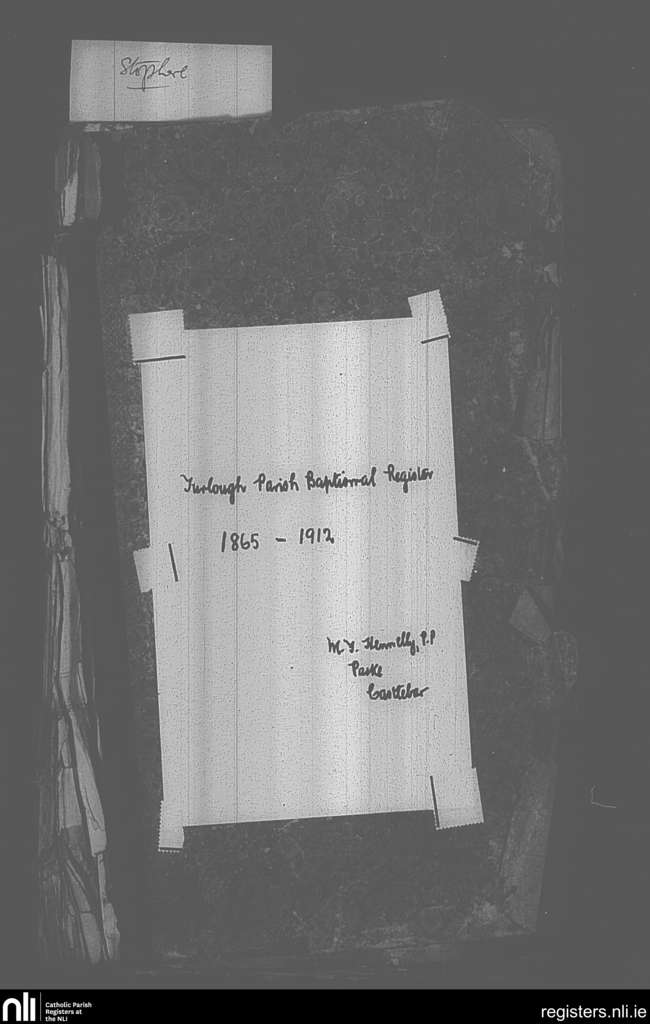 Stop here
Turlough Parish Baptismal Register
1865 - 1912
Parke
Castlebar
nli
Catholic Parish
Registers at
the NLI
registers.nli.ie